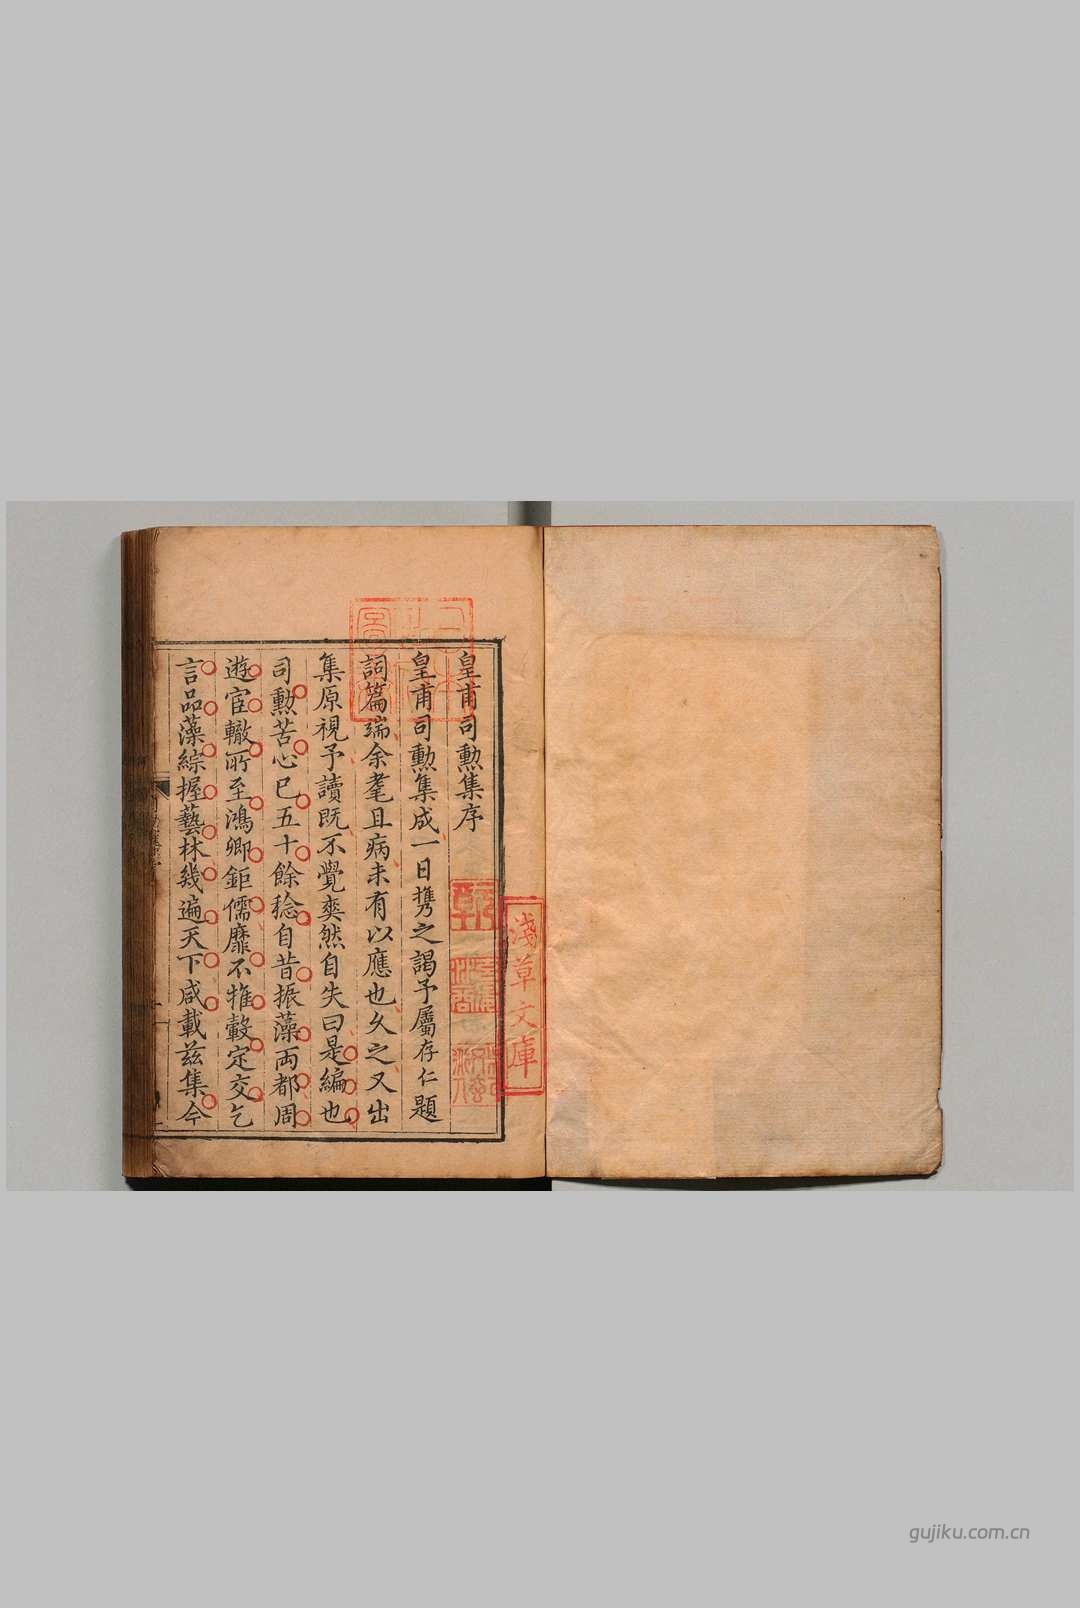 皇甫司勲集序
皇甫司勲集成一日攜之謁予屬存仁題
詞篇端余耄且病未有以應也久之又出
集原視予讀既不覺爽然自失曰是編也
司勲苦心已五十餘稔自昔振藻两都周
遊宦轍所至鴻卿鉅儒靡不推轂定交乞
言品藻綜握藝林幾遍天下咸載兹集今
淺草文庫
gujiku.com.cn